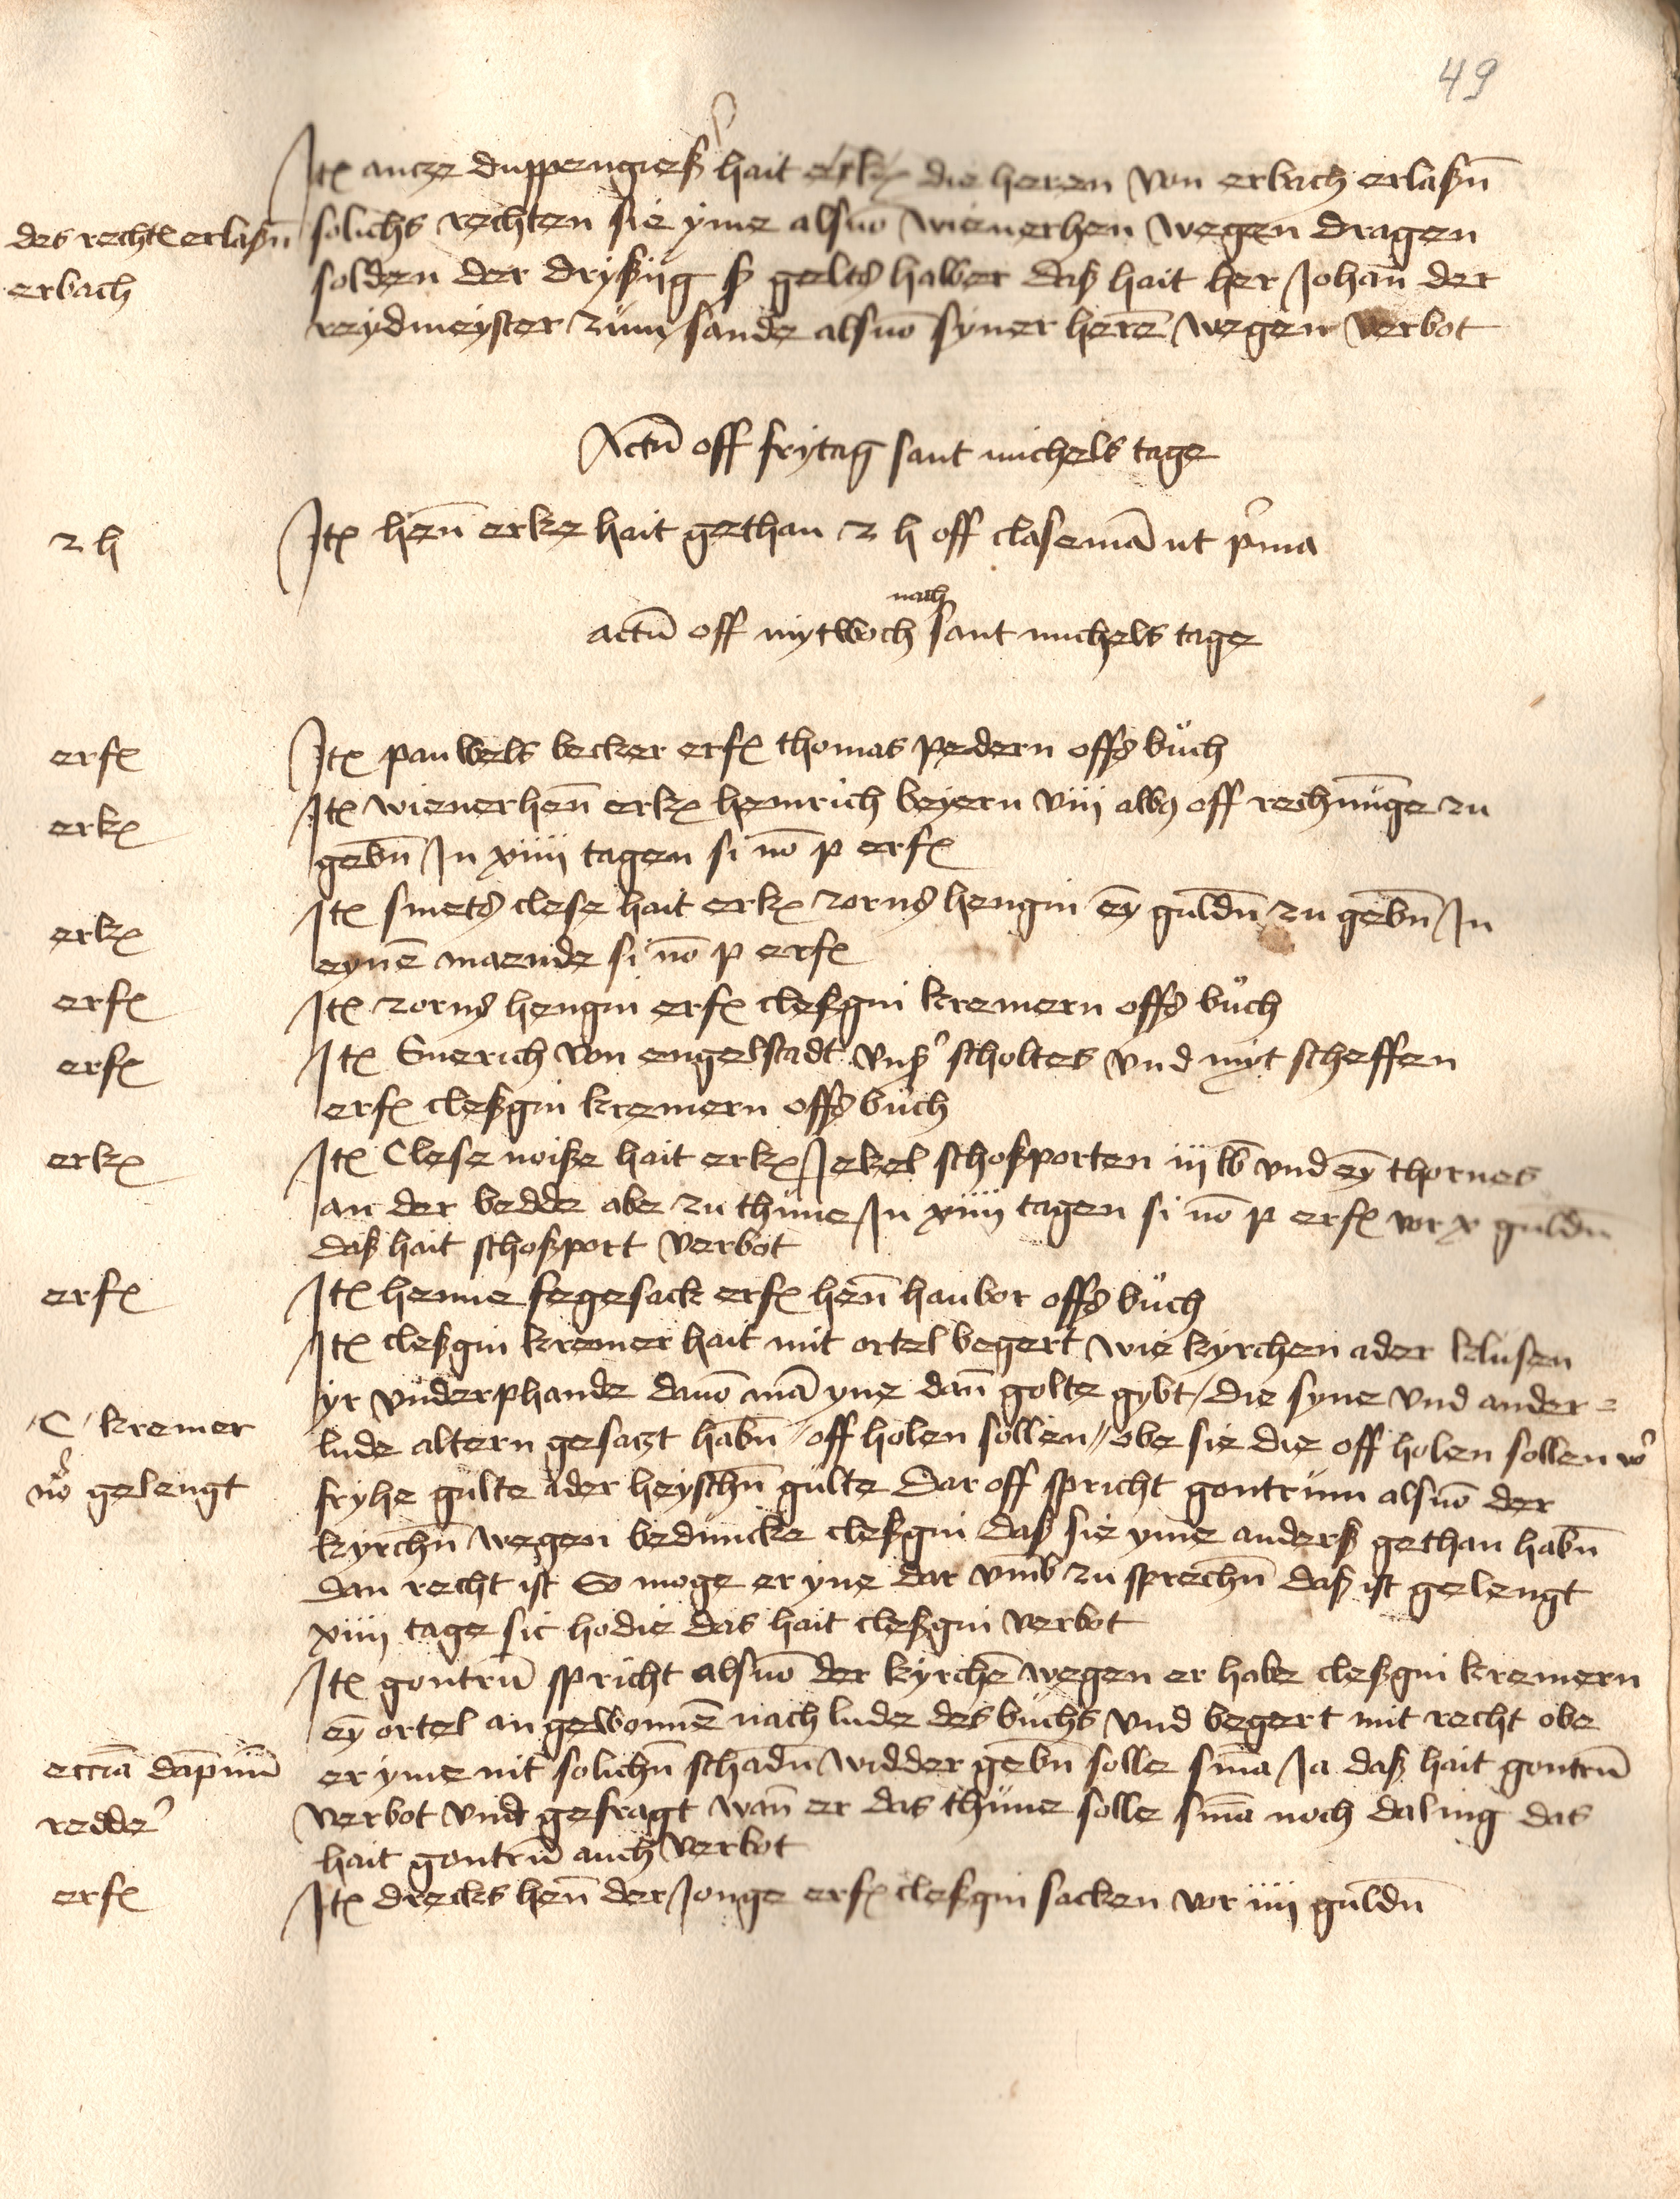 49
Itꝫ antze duppengieß hait erkꝫ die heren von erbach erlaßn̄
des rechtꝫ erlaßn̄
erbach
solichs rechten sie yme alsuō wienerhen wegen dragen
solden der dryßijg ß gelts halber daß hait her Johan̄ der
reydmeyster zum sande alsuō syner herē wegen verbot
Actū off frytag sant michels tage
2 h
Itꝫ hen̄ erke hait gethan 2 h off clasemā ut p̄ma
nach
actū off mytwoch sant michels tage
erfꝫ
Itꝫ pauwels becker erfꝫ thomas pedern offs buch
erkꝫ
Itꝫ wienerhen̄ erkꝫ heinrich beyern viij albꝫ off rechnūge zu
gebn̄ In xiiij tagen si nō p erfꝫ
erkꝫ
Itꝫ smets clese hait erkꝫ zorns hengin eȳ guldn̄ zu gebn̄ In
eynē maende si nō p erfꝫ
erfꝫ
Itꝫ zorns hengin erfꝫ cleßgin kremern offs buch
erfꝫ
Itꝫ Emerich von engelstadt vnß scholtes vnd myt scheffen
erfꝫ cleßgin kremern offs buch
erkꝫ
Itꝫ Clese noiße hait erkꝫ Jekel schoßporten iij lb vnd eȳ thornes
an der bedde abe zu thune In xiiij tagen si nō p erfꝫ vor x guldn̄
daß hait schoßport verbot
erfꝫ
Itꝫ henne fegesack erfꝫ hen̄ haubor offs buch
Itꝫ cleßgin kremer hait mit ortel begert wie kyrchen ader klusen
yr vnderphande dauō mā yne dan̄ golte gybt / die syne vnd ander=
C kremer
lude altern gesatzt habn̄ / off holen sollen // obe sie die off holen sollen vor
nō gelengt
fryhe gulte ader heyschn̄ gulte Dar off spricht gontrum alsuō der
kyrchn̄ wegen beduncke cleßgin daß sie yme anderß gethan habn̄
dan recht ist So moge er yne dar vmb zu sprechn̄ daß ist gelengt
xiiij tage sic hodie das hait cleßgin verbot
Itꝫ gontrū spricht alsuō der kyrchē wegen er habe cleßgin kremern
eȳ ortel an gewonnē nach lude des buchs vnd begert mit recht obe
eccīa dāpnū
er yme nit solichn̄ schadn̄ widder gebn̄ solle smā Ja daß hait gontrū
redde'
verbot vnd gefragt wan̄ er das thune solle smā noch daling das
hait gontrū auch verbot
erfꝫ
Itꝫ drecks hen̄ der Jonge erfꝫ cleßgin sacken vor iiij guldn̄